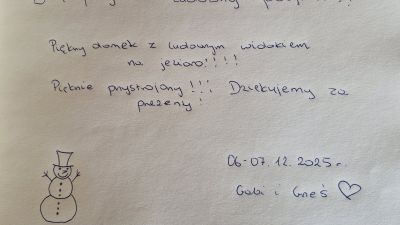 Piękny domek z cudownym widokiem
na jezioro!!!!
Pięknie przystrojony!!! Dziękujemy za
prezeny!
06-07.12.2025r.
Gabi i Grześ ♡